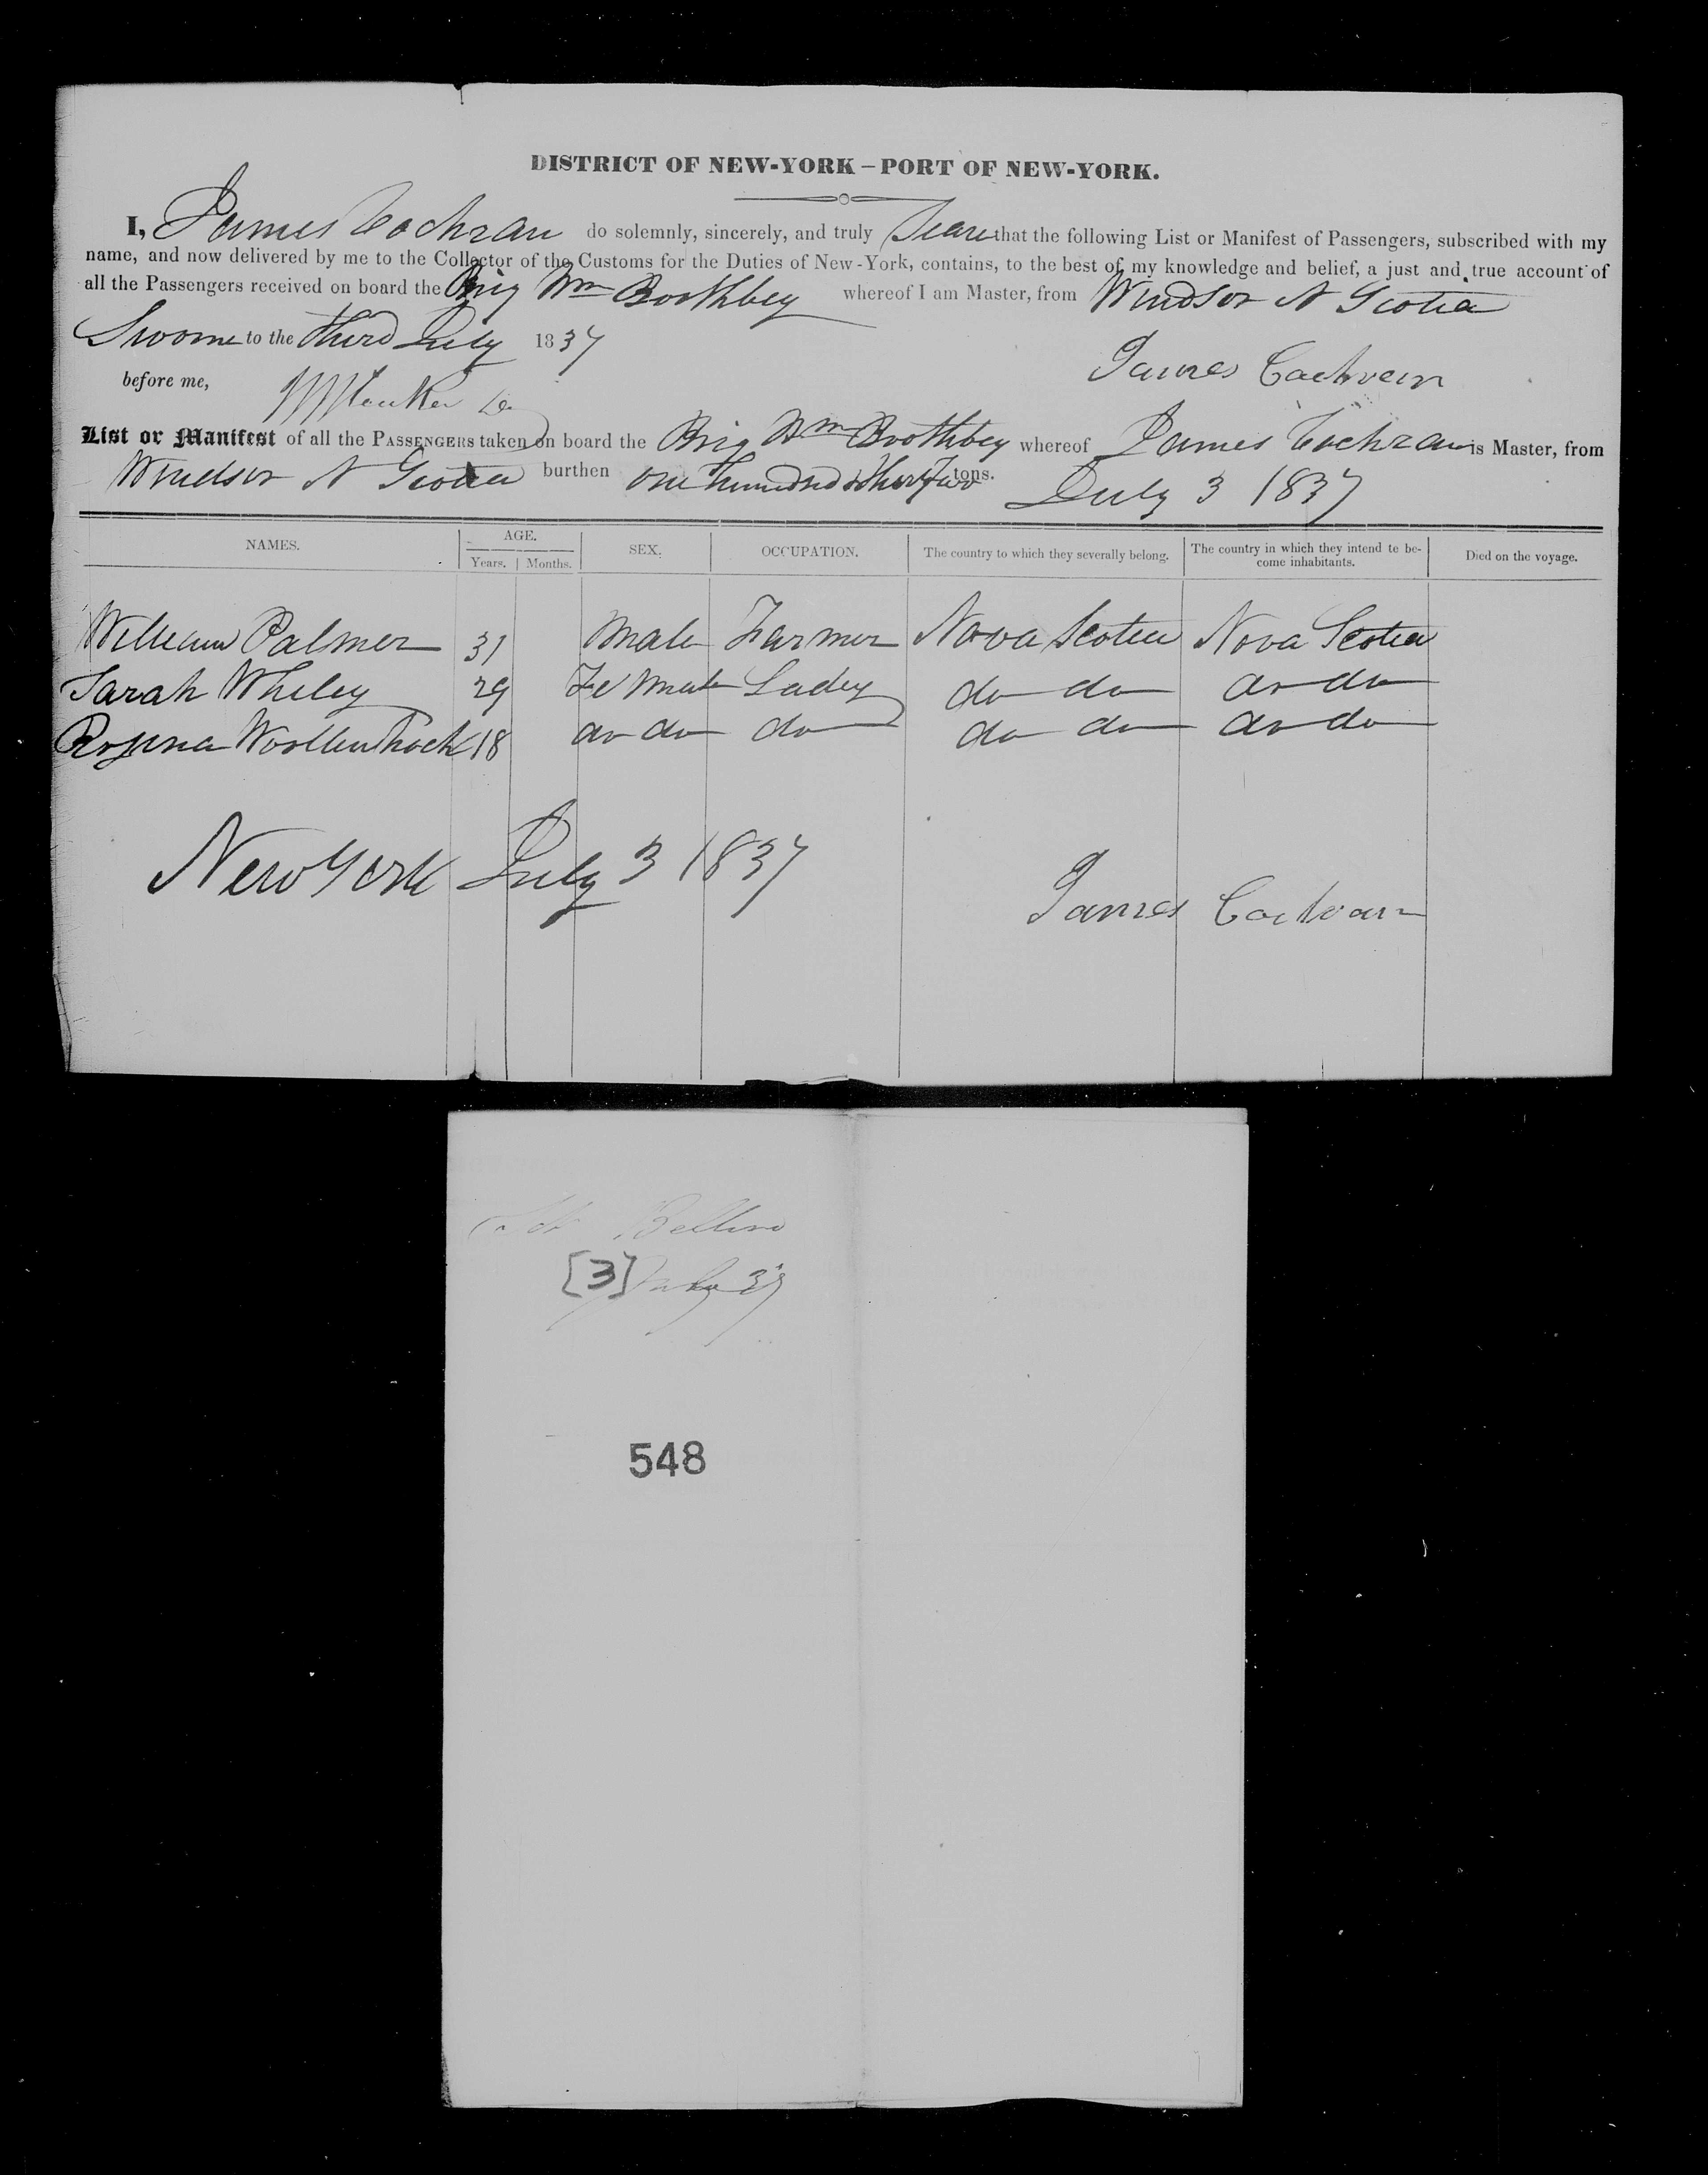 DISTRICT OF NEW-YORK – PORT OF NEW-YORK.
I, James Cochran do solemnly, sincerely, and truly Swear that the following List or Manifest of Passengers, subscribed with my
name, and now delivered by me to the Collector of the Customs for the Duties of New-York, contains, to the best of my knowledge and belief, a just and true account of
all the Passengers received on board the Brig Wm Boothbey whereof I am Master, from Windsor N Scotia
Sworn to the third July 1837
James Cochran
before me,
List or Manifest of all the PASSENGERS taken on board the Brig Wm Boothbey whereof James Cochran is Master, from
Windsor N Scotia burthen one hundred & thirty two tons. July 3 1837
NAMES. AGE. SEX. OCCUPATION. The country to which they severally belong. The country in which they intend te be-
come inhabitants. Died on the voyage.
Years. Months.
William Palmer 31 Male Farmer Nova Scotia Nova Scotia
Sarah Whiley 29 Fe Male Ladey do do do do
18 do do do do do do do
New York July 3 1837
James Cochran
Bellino
[3] July 37
548